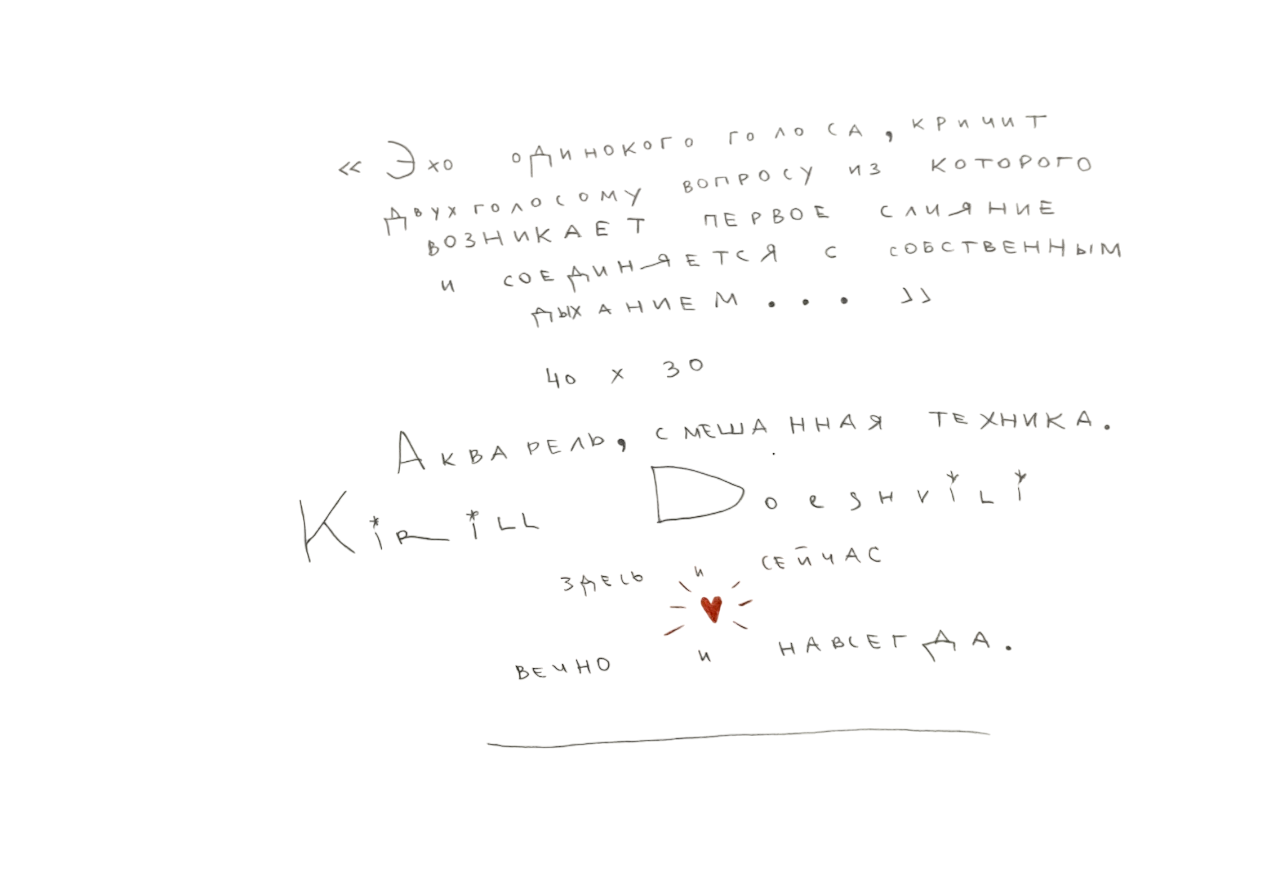 « Эхо одинокого голоса, кричит
двухголосому вопросу из которого
возникает первое слияние
и соединяется с собственным
дыханием... »
40 х 30
Акварель, смешанная техника.
Kirill Doeshvili
здесь и сейчас
вечно и навсегда.